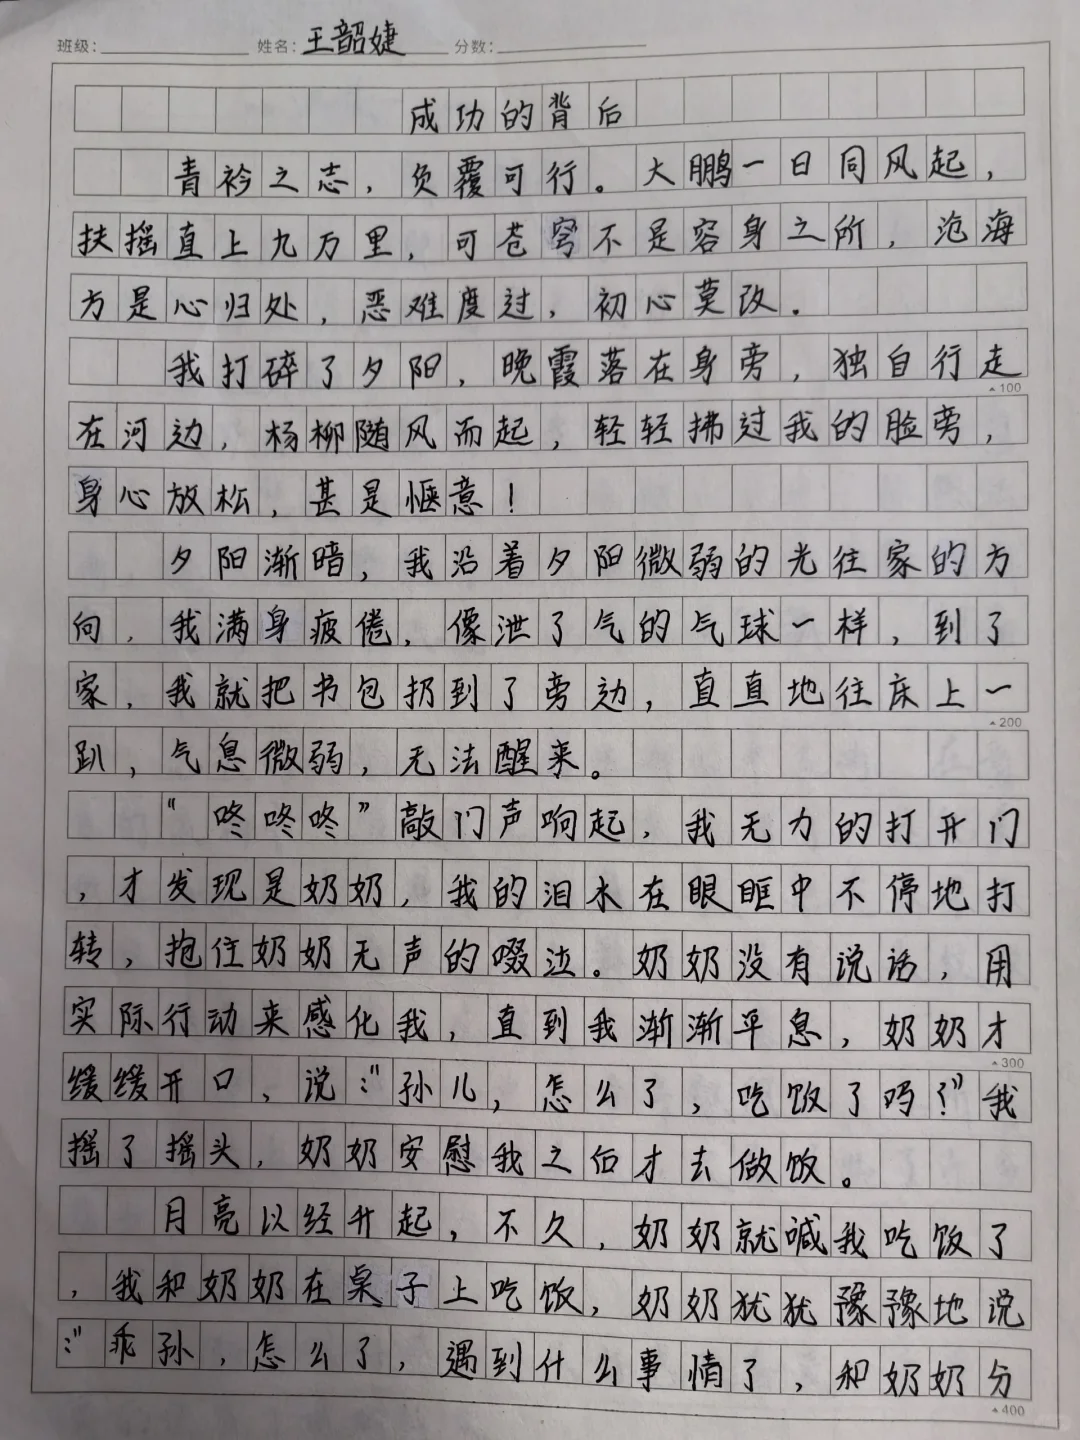 班级： 姓名：王韶婕 分数：
成功的背后
青衿之志，负覆可行。大鹏一日同风起，
扶摇直上九万里，可苍穹不是容身之所，沧海
方是心归处，恶难度过，初心莫改.
我打碎了夕阳，晚霞落在身旁，独自行走
100
在河边，杨柳随风而起，轻轻拂过我的脸旁，
身心放松，甚是惬意！
夕阳渐暗，我沿着夕阳微弱的光往家的方
向，我满身疲倦，像泄了气的气球一样，到了
家，我就把书包扔到了旁边，直直地往床上一
200
趴，气息微弱，无法醒来。
“咚咚咚”敲门声响起，我无力的打开门
，才发现是奶奶，我的泪水在眼眶中不停地打
转，抱住奶奶无声的啜泣。奶奶没有说话，用
实际行动来感化我，直到我渐渐平息，奶奶才
300
缓缓开口，说：“孙儿，怎么了，吃饭了吗？”我
摇了摇头，奶奶安慰我之后才去做饭。
月亮以经升起，不久，奶奶就喊我吃饭了
，我和奶奶在桌子上吃饭，奶奶犹犹豫豫地说
：“乖孙，怎么了，遇到什么事情了，和奶奶分
400